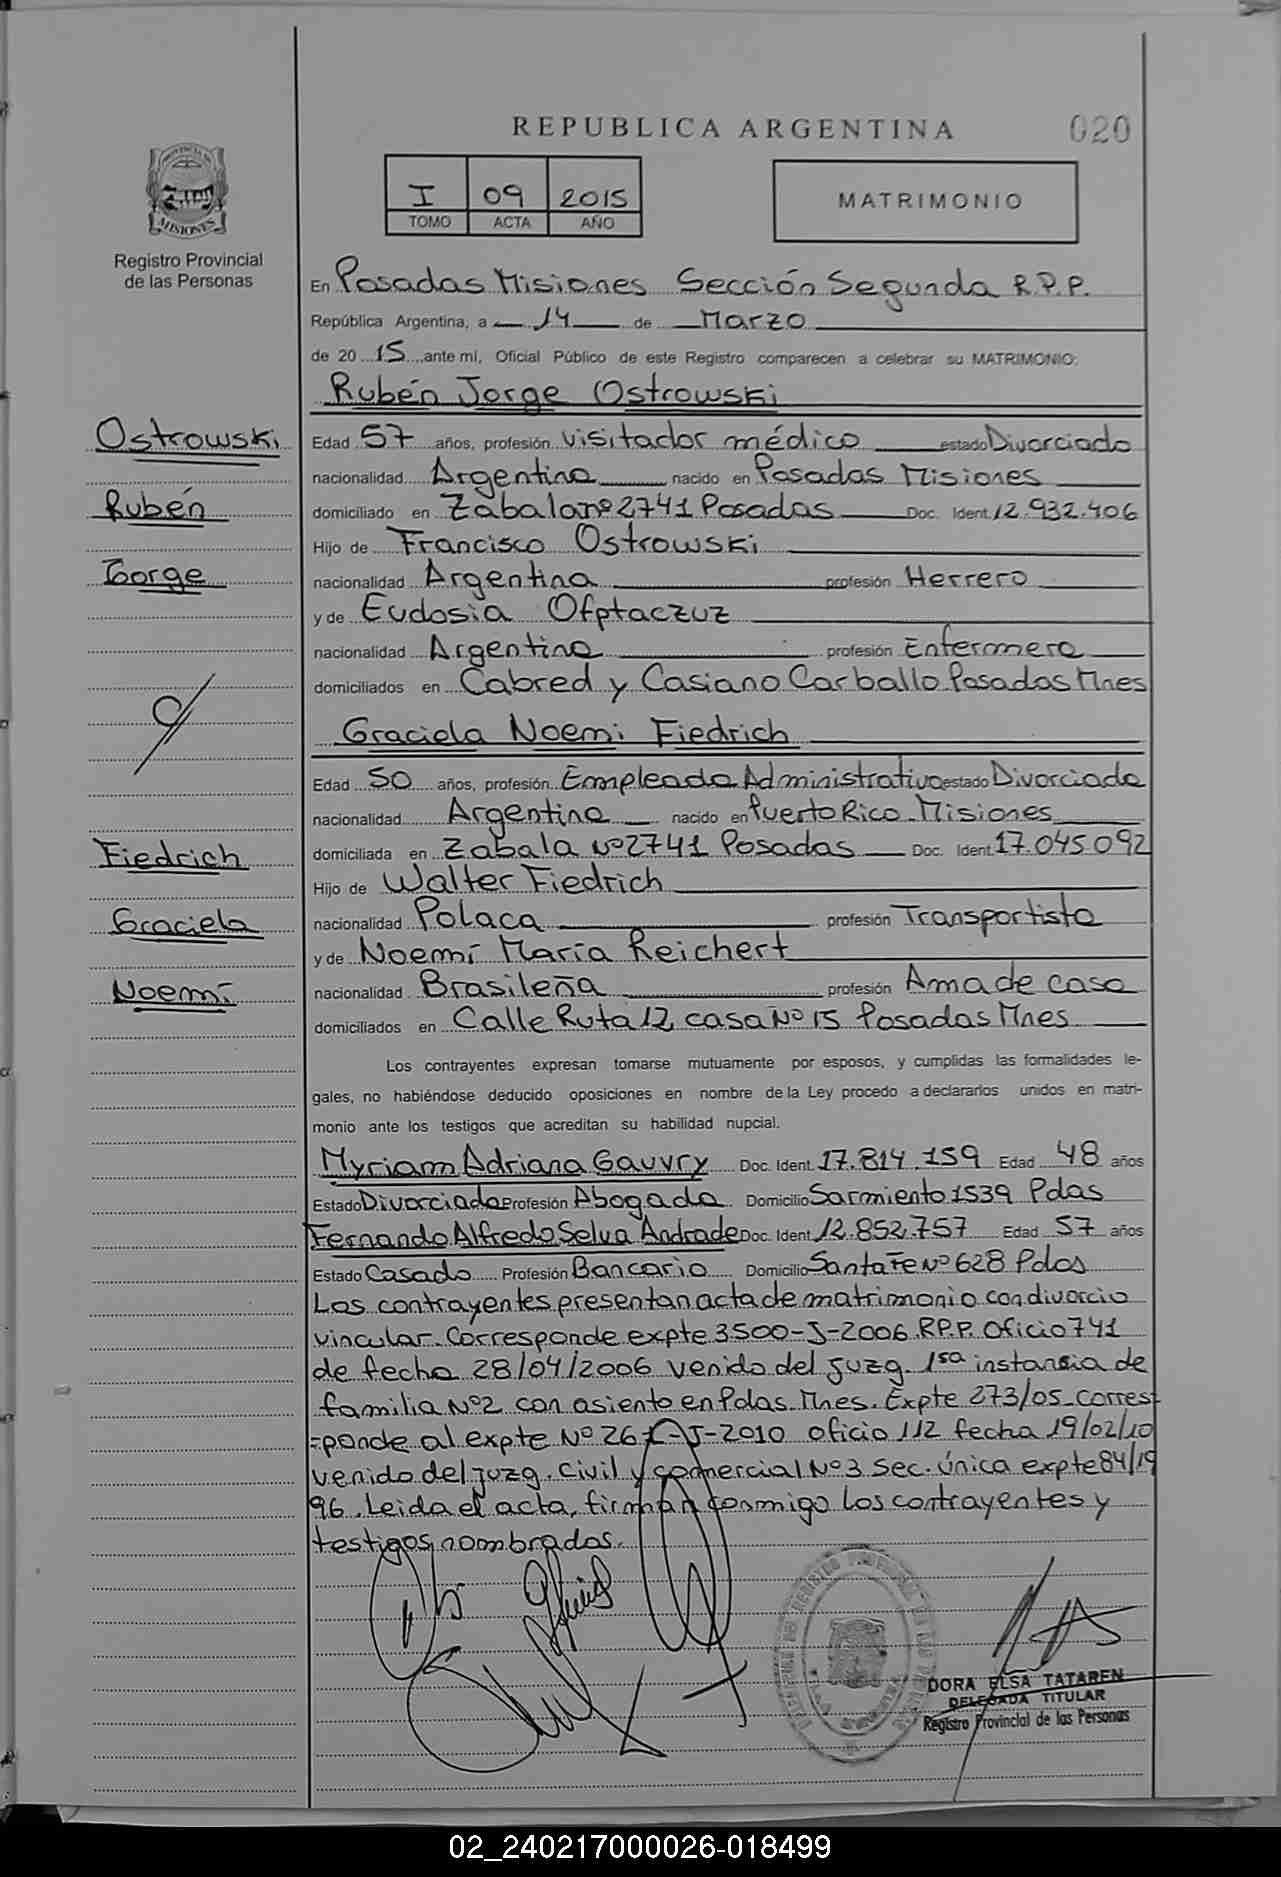 REPUBLICA ARGENTINA
020
PROVINCIA DE
MISIONES
Registro Provincial
de las Personas
I 09 2015
TOMO ACTA AÑO
MATRIMONIO
En Posadas Misiones Sección Segunda R.P.P.
República Argentina, a 14 de Marzo
de 20 15 ante mi, Oficial Público de este Registro comparecen a celebrar su MATRIMONIO:
Rubén Jorge Ostrowski
Ostrowski
Edad 57 años, profesión visitador médico estado Divorciado
nacionalidad Argentina nacido en Posadas Misiones
Rubén
domiciliado en Zabala nº 2741 Posadas Doc. Ident. 12.932.406
Hijo de Francisco Ostrowski
Jorge
nacionalidad Argentina profesión Herrero
y de Eudosia Ofptaczuz
nacionalidad Argentina profesión Enfermera
domiciliados en Cabred y Casiano Carballo Posadas Mnes
Graciela Noemi Fiedrich
Edad 50 años, profesión Empleada Administrativa estado Divorciada
nacionalidad Argentina nacido en Puerto Rico Misiones
Fiedrich
domiciliada en Zabala Nº 2741 Posadas Doc. Ident. 17.045.092
Hijo de Walter Fiedrich
Graciela
nacionalidad Polaca profesión Transportista
y de Noemí María Reichert
Noemí
nacionalidad Brasileña profesión Ama de casa
domiciliados en Calle Ruta 12 casa Nº 15 Posadas Mnes
Los contrayentes expresan tomarse mutuamente por esposos, y cumplidas las formalidades le-
gales, no habiéndose deducido oposiciones en nombre de la Ley procedo a declararlos unidos en matri-
monio ante los testigos que acreditan su habilidad nupcial.
Myriam Adriana Gauvry Doc. Ident. 17.814.159 Edad 48 años
Estado Divorciada Profesión Abogada Domicilio Sarmiento 1539 Pdas
Fernando Alfredo Selva Andrade Doc. Ident. 12.852.757 Edad 57 años
Estado Casado Profesión Bancario Domicilio Santa Fe Nº 628 Pdas
Los contrayentes presentan acta de matrimonio con divorcio
vincular. Corresponde expte 3500-J-2006 RP.P. Oficio 741
de fecha 28/04/2006 venido del juzg. 1sa instancia de
familia Nº2 con asiento en Pdas. Mnes. Expte 273/05 corres-
=ponde al expte Nº 267-J-2010 oficio 112 fecha 19/02/10
venido del juzg. Civil y comercial Nº3 Sec. única expte 84/19
96. Leida el acta, firman conmigo los contrayentes y
testigos nombrados.
DORA ELSA TATAREN
DELEGADA TITULAR
Registro Provincial de las Personas
02_240217000026-018499